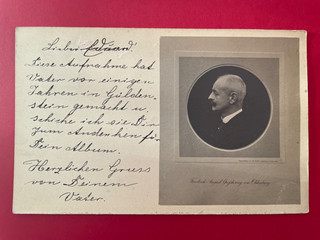 Lieber Eduard!
Diese Aufnahme hat
Vater vor einigen
Jahren in Gülden-
stein gemacht u.
schicke ich sie Dir
zum Andenken für
Dein Album.
Herzlichen Gruss
von Deinem
Vater.
Friedrich August Großherzog von Oldenburg